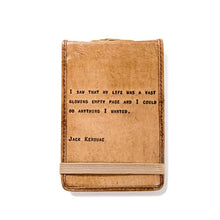 I SAW THAT MY LIFE WAS A VAST
GLOWING EMPTY PAGE AND I COULD
DO ANYTHING I WANTED.
JACK KEROUAC